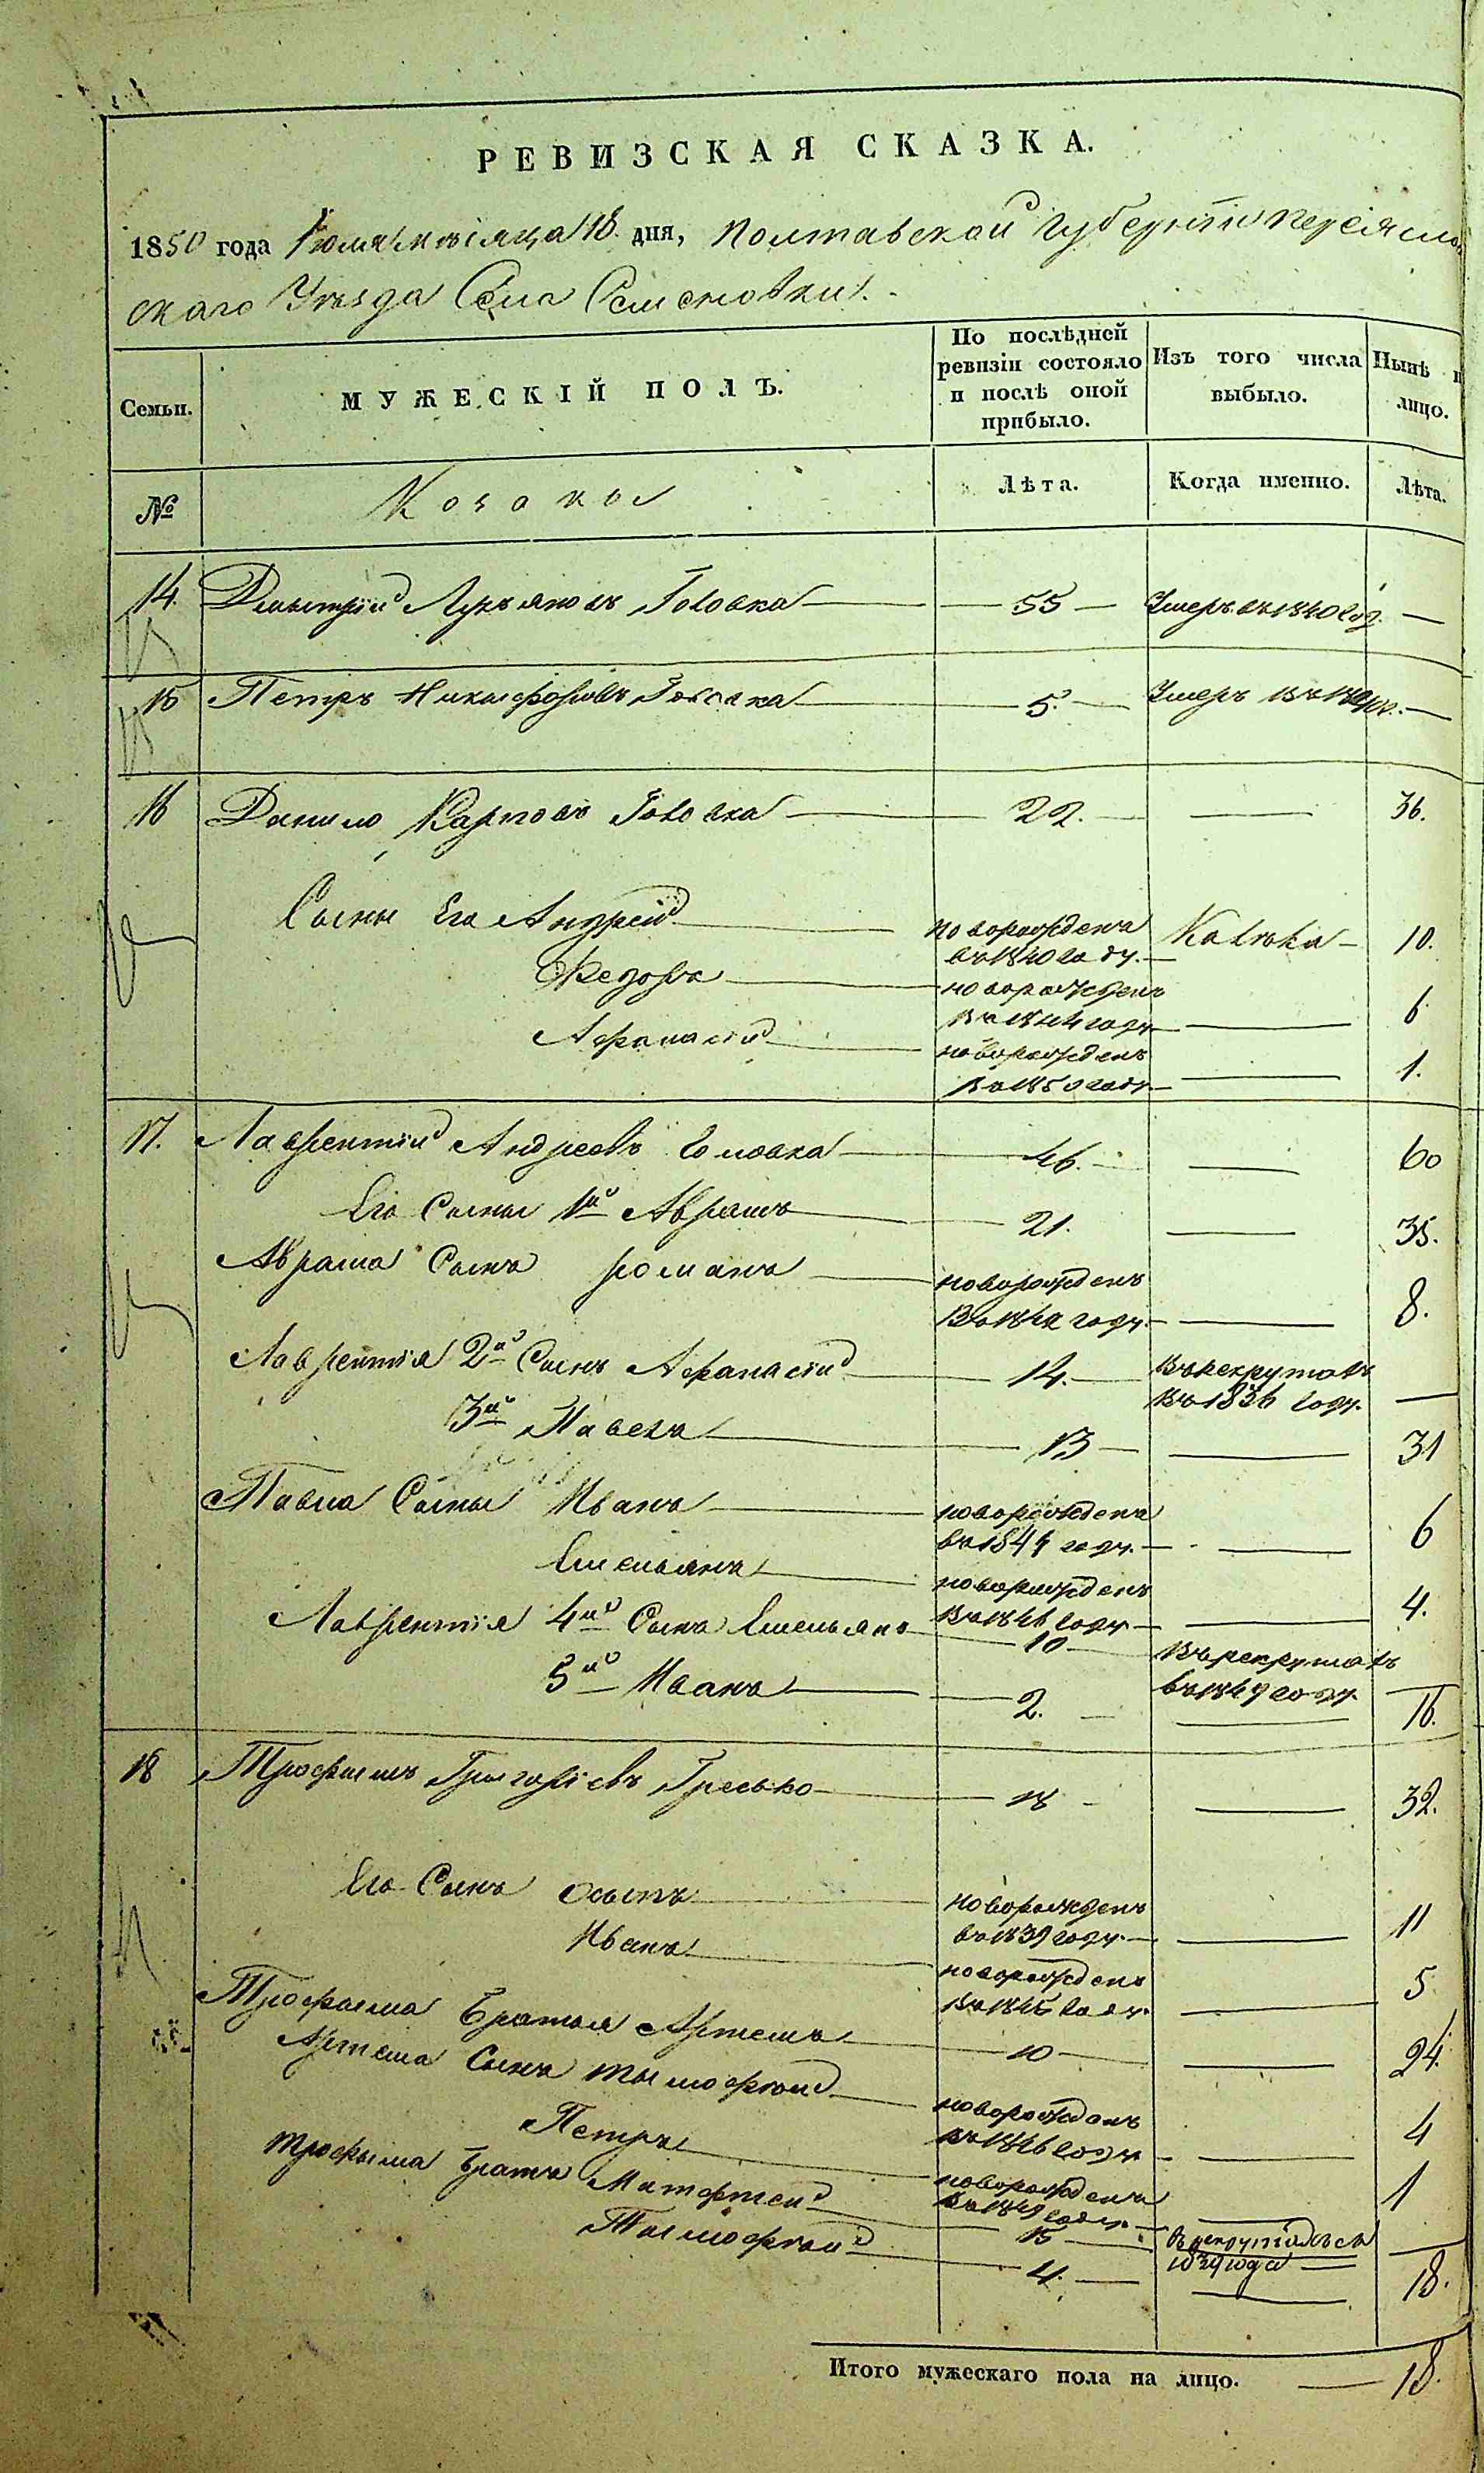 РЕВИЗСКАЯ СКАЗКА.
1850 года Іюля мѣсяца 18 дня, Полтавской Губерніи Переясла
скаго Уѣзда Села Семеновки.
Семьи. МУЖЕСКІЙ ПОЛЪ. По послѣдней ревизіи состояло и послѣ оной прибыло. Изъ того числа выбыло. Нынѣ н лицо.
№ Козаки Лѣта. Когда именно. Лѣта.
14. Дмытрій Лукъяновъ Головка — 55 — Умеръ въ 1840 год. —
15 Петръ Никифоровъ Головка — 5. — Умеръ въ —
16 Данило Карповъ Головка — 22. — — 36.
Сыны Его Андрей — новорожденъ — 10.
въ 1840 году. —
Федоръ — новорожденъ
въ 1844 году — — 6
Афанасій — новорожденъ
въ 1850 году. — — 1.
17. Лаврентій Андреевъ Головка — 46. — — 60
Его Сыны 1й Аврамъ — 21. — 35.
Аврама Сынъ Романъ — новорожденъ
въ 1842 году. — — 8.
Лаврентія 2й Сынъ Афанасій — 14. — въ рекрутахъ
въ 1836 году. —
3й Павелъ — 13 — — 31
Павла Сыны Иванъ — новорожденъ
въ 1844 году. — — 6
Емельянъ — новорожденъ
въ 1846 году — — 4.
Лаврентія 4й Сынъ Емельянъ — 10 — въ рекрутахъ
въ 1849 году —
5й Иванъ — 2. — — 16.
18 Трофымъ Григоріевъ Гресько — 18 — — 32.
Его Сынъ Осыпъ — новорожденъ
въ 1839 году. — — 11
Иванъ — новорожденъ
въ 1845 году. — 5
Трофыма Братья Артемъ — 10 — — 24.
Артема Сынъ Тымофѣй — новорожденъ
въ 1846 году — — 4
Петръ — новорожденъ
въ 1849 году — — 1
Трофыма Братъ Матфей — 15 — въ рекрутахъ съ
1839 года — —
Тымофѣй — 4. — — 18.
Итого мужескаго пола на лицо. — 18.